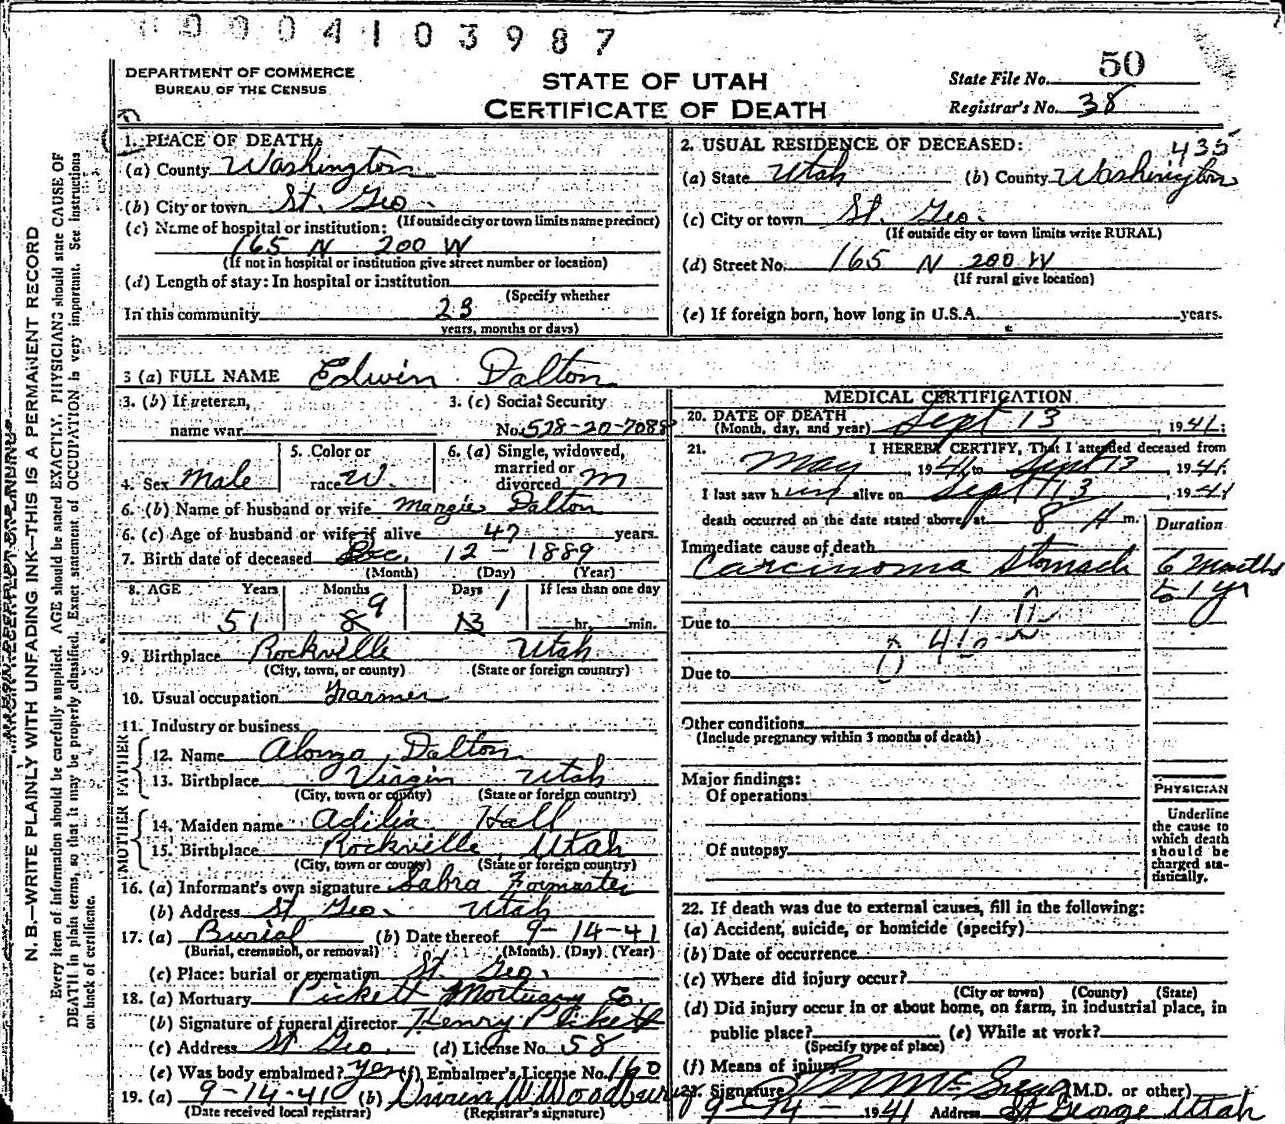 0004103987
DEPARTMENT OF COMMERCE
BUREAU OF THE CENSUS
STATE OF UTAH
CERTIFICATE OF DEATH
State File No. 50
Registrar's No. 38
1. PLACE OF DEATH:
(a) County Washington
(b) City or town St. Geo.
(If outside city or town limits name precinct)
(c) Name of hospital or institution:
165 N 200 W
(If not in hospital or institution give street number or location)
(d) Length of stay: In hospital or institution
(Specify whether
In this community 23
years, months or days)
2. USUAL RESIDENCE OF DECEASED:
435
(a) State Utah (b) County Washington
(c) City or town St. Geo.
(If outside city or town limits write RURAL)
(d) Street No. 165 N 200 W
(If rural give location)
(e) If foreign born, how long in U.S.A. years.
3 (a) FULL NAME Edwin Dalton
3. (b) If veteran,
name war
3. (c) Social Security
No. 528-20-7088
4. Sex Male
5. Color or
race W.
6. (a) Single, widowed,
married or
divorced m
6. (b) Name of husband or wife Margie Dalton
6. (c) Age of husband or wife if alive 47 years.
7. Birth date of deceased Dec. 12 - 1889
(Month) (Day) (Year)
8. AGE Years Months Days If less than one day
9 1
51 8 13 hr. min.
9. Birthplace Rockville Utah
(City, town, or county) (State or foreign country)
10. Usual occupation Farmer
11. Industry or business
FATHER
12. Name Alonzo Dalton
13. Birthplace Virgin Utah
(City, town or county) (State or foreign country)
MOTHER
14. Maiden name Adilia Hall
15. Birthplace Rockville, Utah
(City, town or county) (State or foreign country)
16. (a) Informant's own signature Sabra Formaster
(b) Address St Geo. Utah
17. (a) Burial (b) Date thereof 9-14-41
(Burial, cremation, or removal) (Month) (Day) (Year)
(c) Place: burial or cremation St. Geo.
18. (a) Mortuary Pickett Mortuary Co.
(b) Signature of funeral director Henry Pickett
(c) Address St Geo. (d) License No. 58
(e) Was body embalmed? Yes (f) Embalmer's License No. 160
19. (a) 9-14-41 (b) Woodbury
(Date received local registrar) (Registrar's signature)
MEDICAL CERTIFICATION
20. DATE OF DEATH
(Month, day, and year) Sept 13, 1941;
21. I HEREBY CERTIFY, That I attended deceased from
May, 1941, to Sept 13, 1941.
I last saw him alive on Sept 13, 1941
death occurred on the date stated above, at 8 A m.
Duration
Immediate cause of death
Carcinoma Stomach 6 months
to 1 yr
Due to
Due to
Other conditions
(Include pregnancy within 3 months of death)
Major findings:
Of operations
Of autopsy
PHYSICIAN
Underline
the cause to
which death
should be
charged sta-
tistically.
22. If death was due to external causes, fill in the following:
(a) Accident, suicide, or homicide (specify)
(b) Date of occurrence
(c) Where did injury occur?
(City or town) (County) (State)
(d) Did injury occur in or about home, on farm, in industrial place, in
public place? (e) While at work?
(Specify type of place)
(f) Means of injury
23. Signature (M.D. or other)
9-14-1941 Address St George Utah
N. B.—WRITE PLAINLY WITH UNFADING INK—THIS IS A PERMANENT RECORD
Every item of information should be carefully supplied. AGE should be stated EXACTLY. PHYSICIANS should state CAUSE OF
DEATH in plain terms, so that it may be properly classified. Exact statement of OCCUPATION is very important. See instructions
on back of certificate.